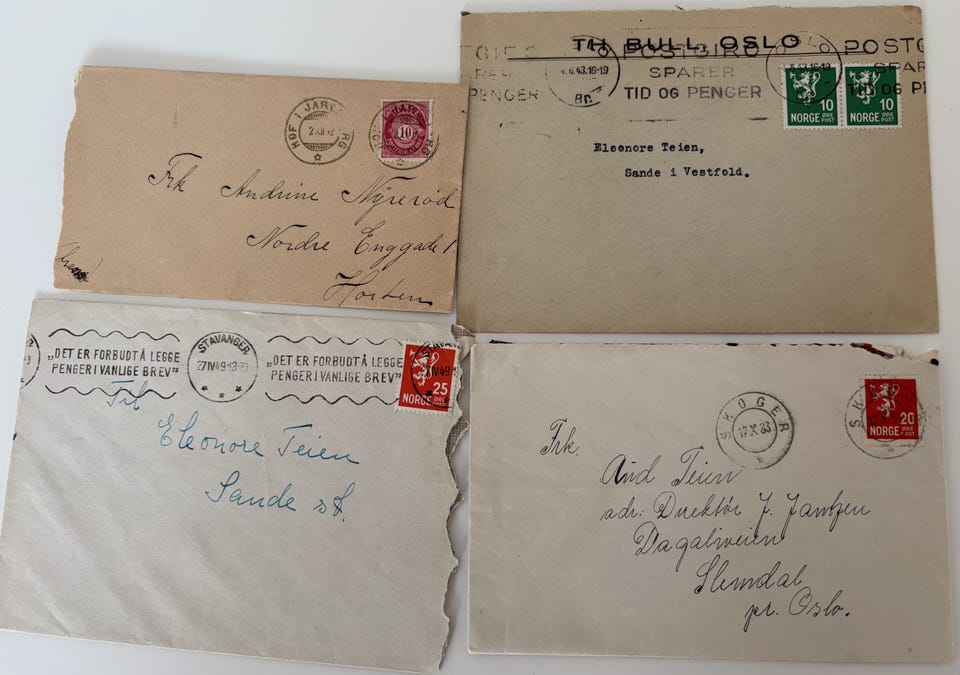 HOF I JARLSBERG
10
Frk Andrine Nyrerød
Nordre Enggade 1
Horten
TH. BULL, OSLO
POSTGIRO
SPARER
TID OG PENGER
POSTG
SPAR
TID OG P
PENGER
6.43.16-19
Br.
10 10
NORGE ØRE POST NORGE ØRE POST
Eleonore Teien,
Sande i Vestfold.
"DET ER FORBUDT Å LEGGE
PENGER I VANLIGE BREV"
STAVANGER
27 IV 49.13-
"DET ER FORBUDT Å LEGGE
PENGER I VANLIGE BREV"
25
NORGE ØRE POST
Til
Eleonore Teien
Sande st.
SKOGER
17 X 33
20
NORGE ØRE POST
Frk.
Teien
adr: Direktør J. Jantzen
Slemdal
pr. Oslo.